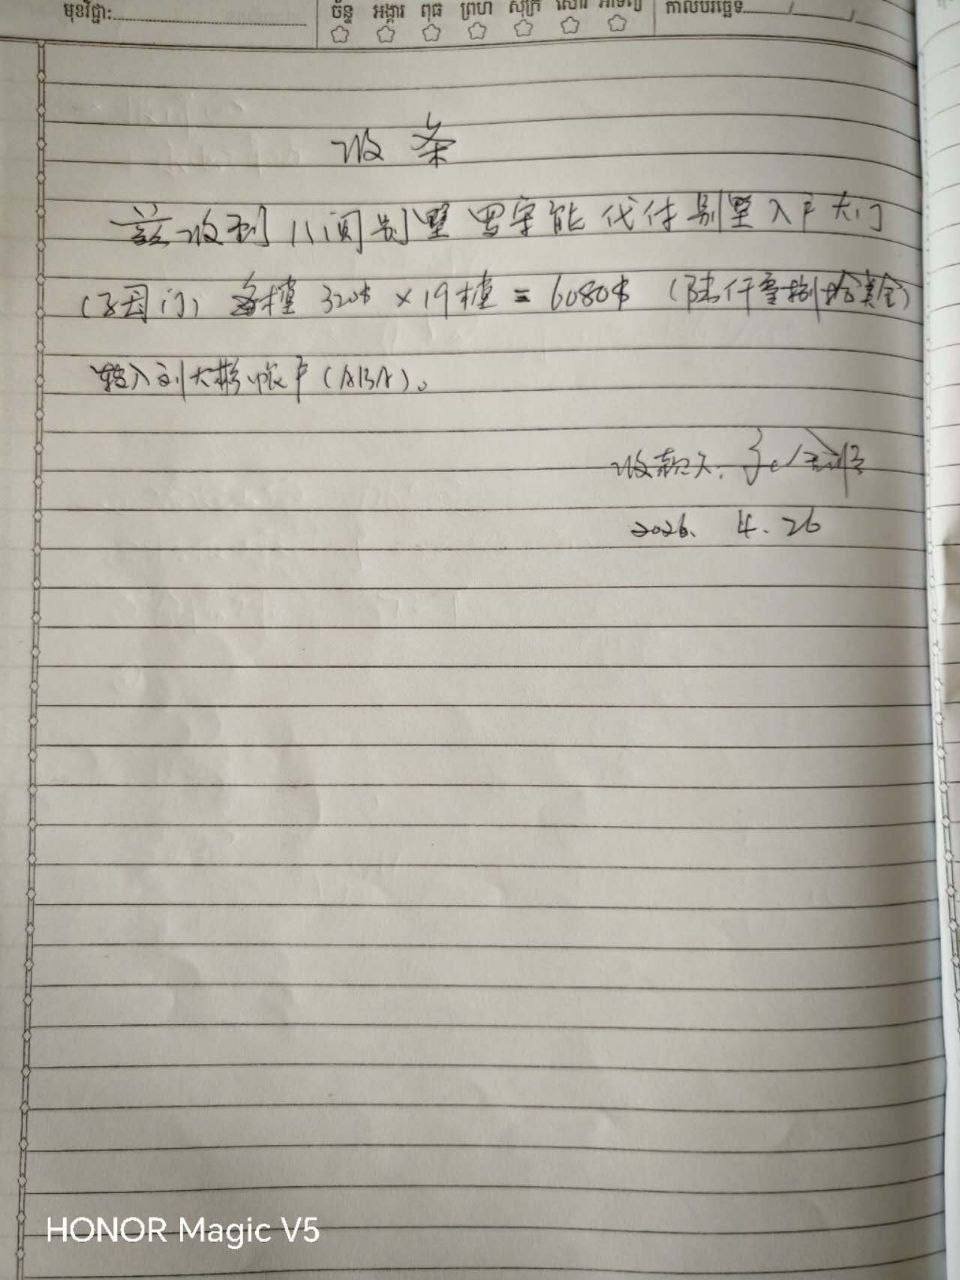 មុខវិជ្ជា:
ច័ន្ទ អង្គារ ពុធ ព្រហ សុក្រ សៅរ៍ អាទិត្យ
កាលបរិច្ឆេទ / /
收条
兹收到八间别墅罗宇能代付别墅入户大门
(子母门) 每樘 320$ × 19樘 = 6080$ (陆仟零捌拾美金)
转入刘大彬帐户(ABA)。
收款人:
2026. 4. 26
HONOR Magic V5